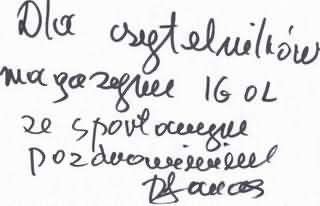 Dla czytelników
magazynu IGOL
ze sportowym
pozdrowieniem